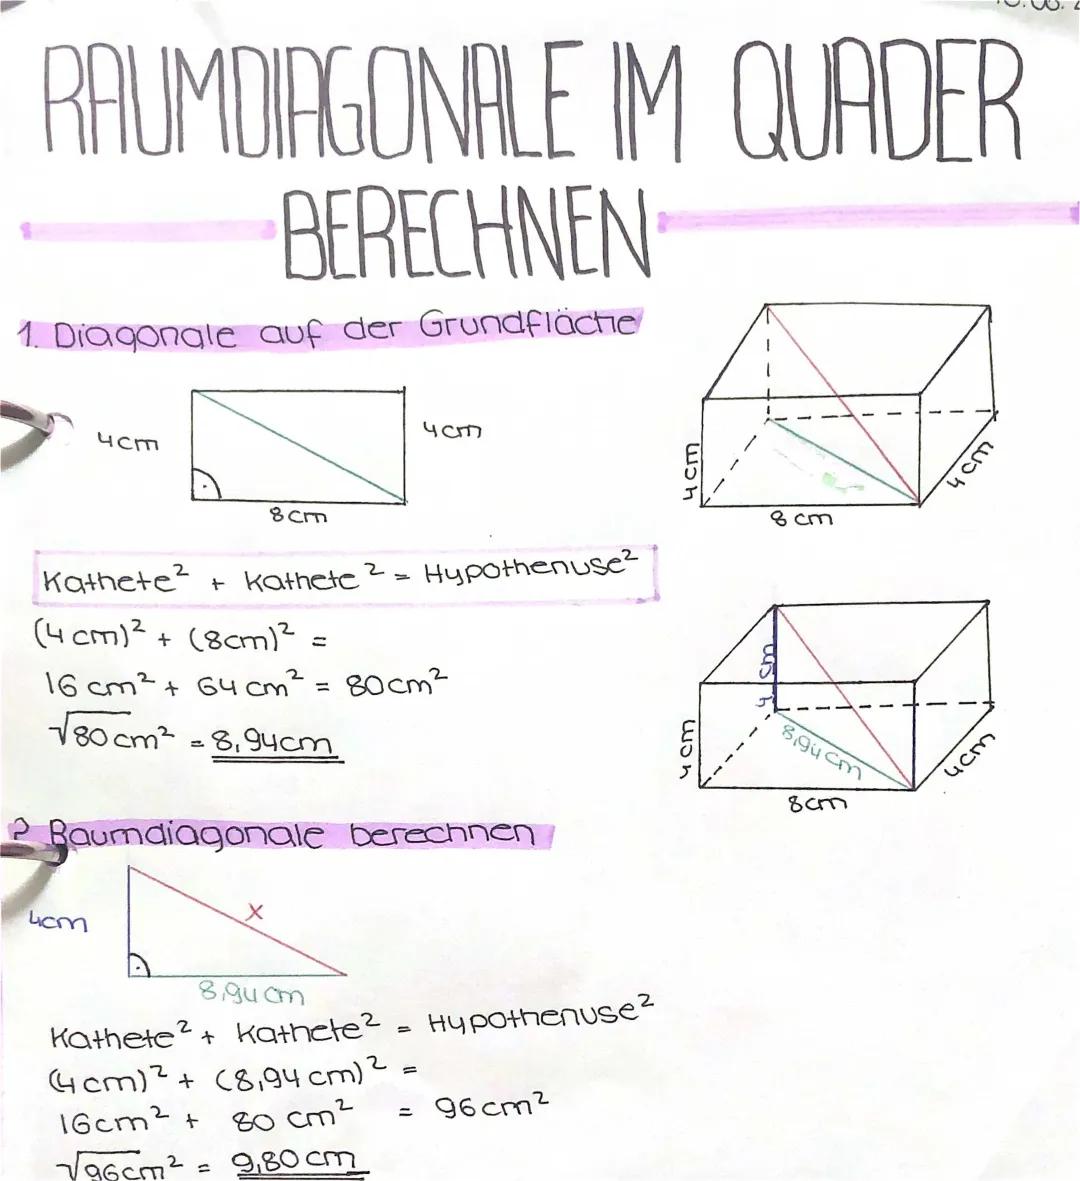 RAUMDIAGONALE IM QUADER
BERECHNEN
1. Diagonale auf der Grundfläche
4cm
4cm
8cm
4cm
4cm
8cm
Kathete² + Kathete² = Hypothenuse²
(4cm)² + (8cm)² =
16 cm² + 64 cm² = 80cm²
√80cm² = 8,94cm
4cm
4cm
8,94cm
4cm
8cm
2 Raumdiagonale berechnen
4cm
x
8,94cm
Kathete² + Kathete² = Hypothenuse²
(4cm)² + (8,94cm)² =
16cm² + 80 cm² = 96cm²
√96cm² = 9,80cm